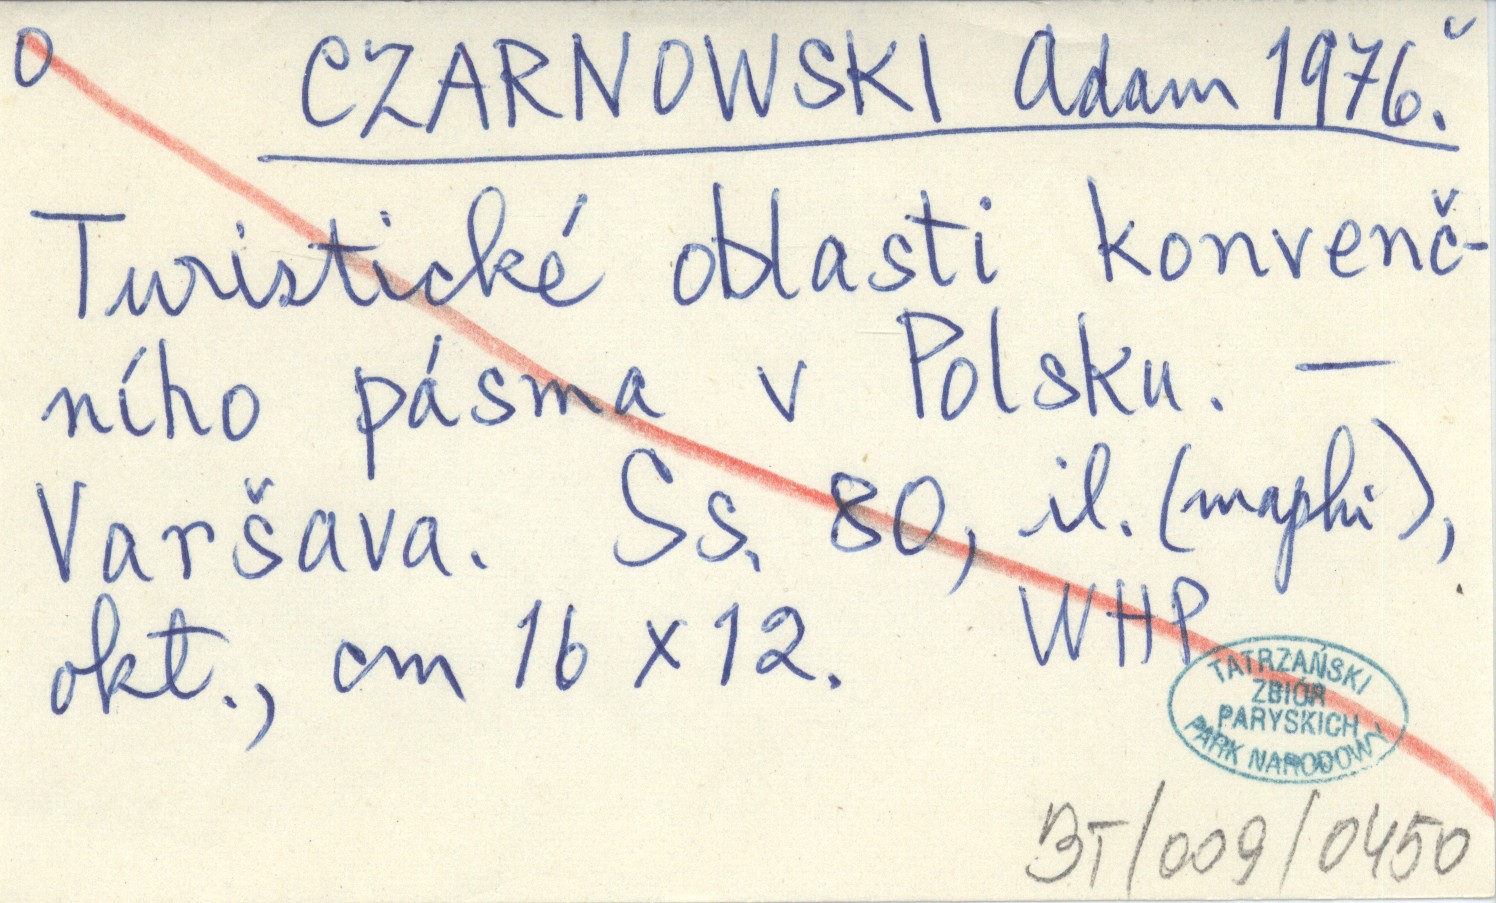 O CZARNOWSKI Adam 1976.č
Turistické oblasti konvenč-
ního pásma v Polsku. —
Varšava. Ss. 80, il. (mapki),
okt., cm 16 x 12. WHP
TATRZAŃSKI
ZBIÓR
PARYSKICH
PARK NARODOWY
BT/009/0450